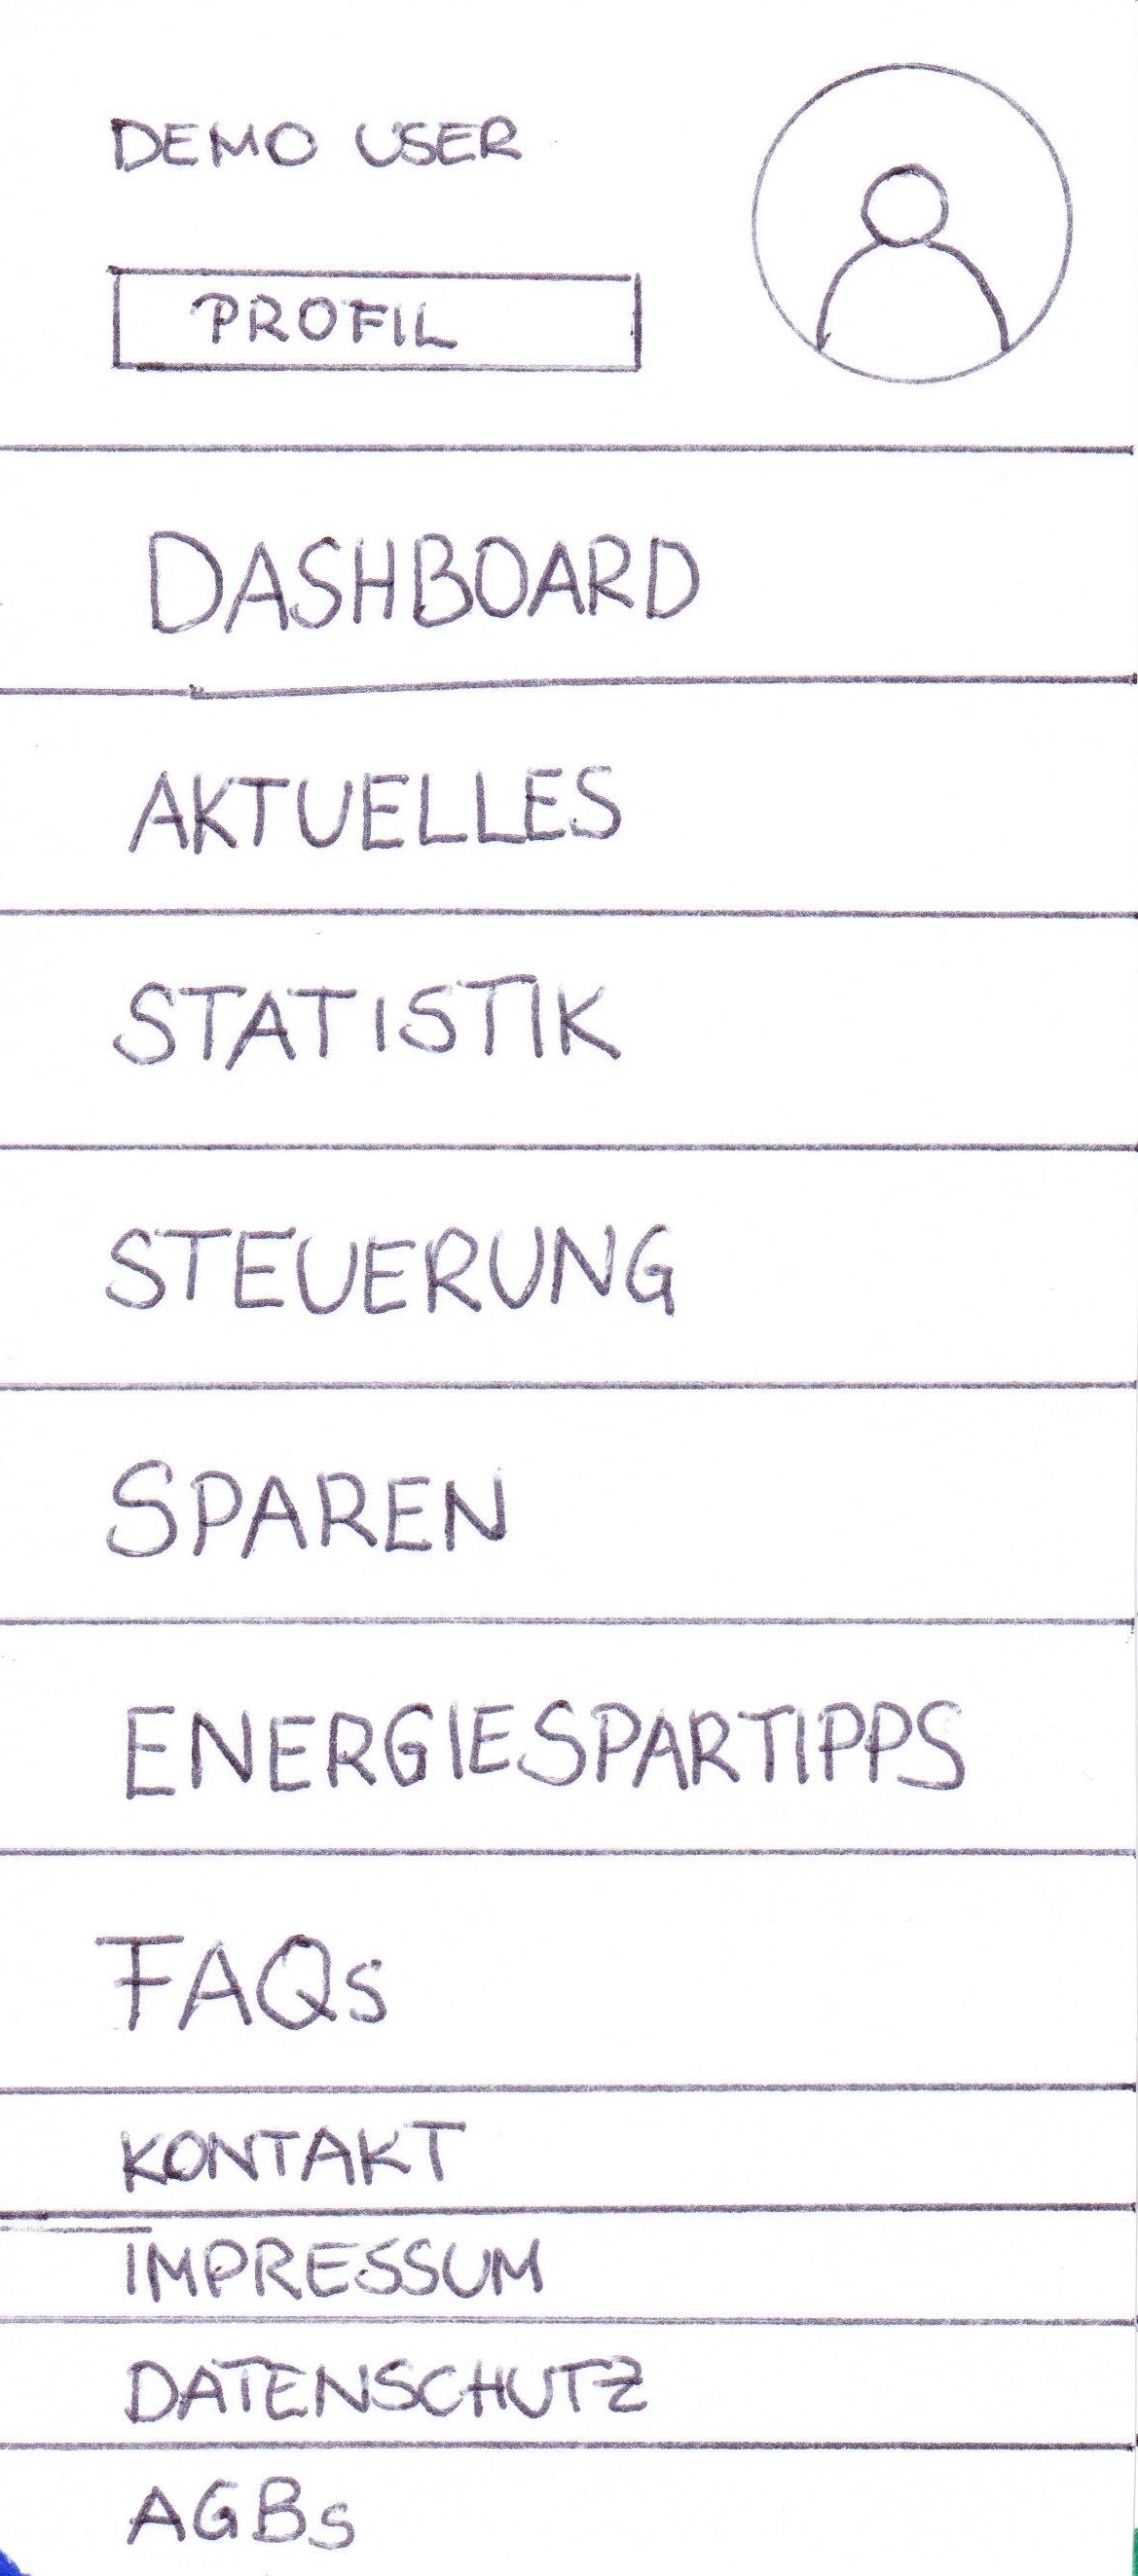 DEMO USER
PROFIL
DASHBOARD
AKTUELLES
STATISTIK
STEUERUNG
SPAREN
ENERGIESPARTIPPS
FAQs
KONTAKT
IMPRESSUM
DATENSCHUTZ
AGBs